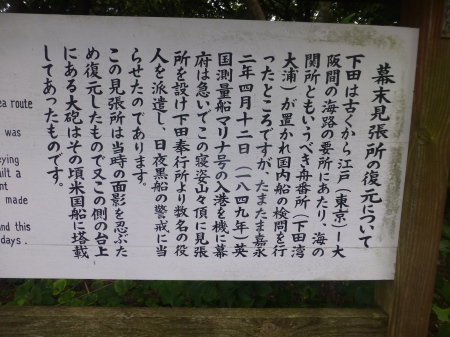 幕末見張所の復元について
下田は古くから江戸(東京)ー大
阪間の海路の要所にあたり、海の
関所ともいうべき舟番所(下田湾
大浦)が置かれ国内船の検問を行
ったところですが、たまたま嘉永
二年四月十二日(一八四九年)英
国測量船マリナ号の入港を機に幕
府は急いでこの寝姿山々頂に見張
所を設け下田奉行所より数名の役
人を派遣し、日夜黒船の警戒に当
らせたのであります。
この見張所は当時の面影を忍ぶた
め復元したもので又この側の台上
にある大砲はその頃米国船に塔載
してあったものです。
ea route
was
eying
uilt a
nt
made
nd this
days.